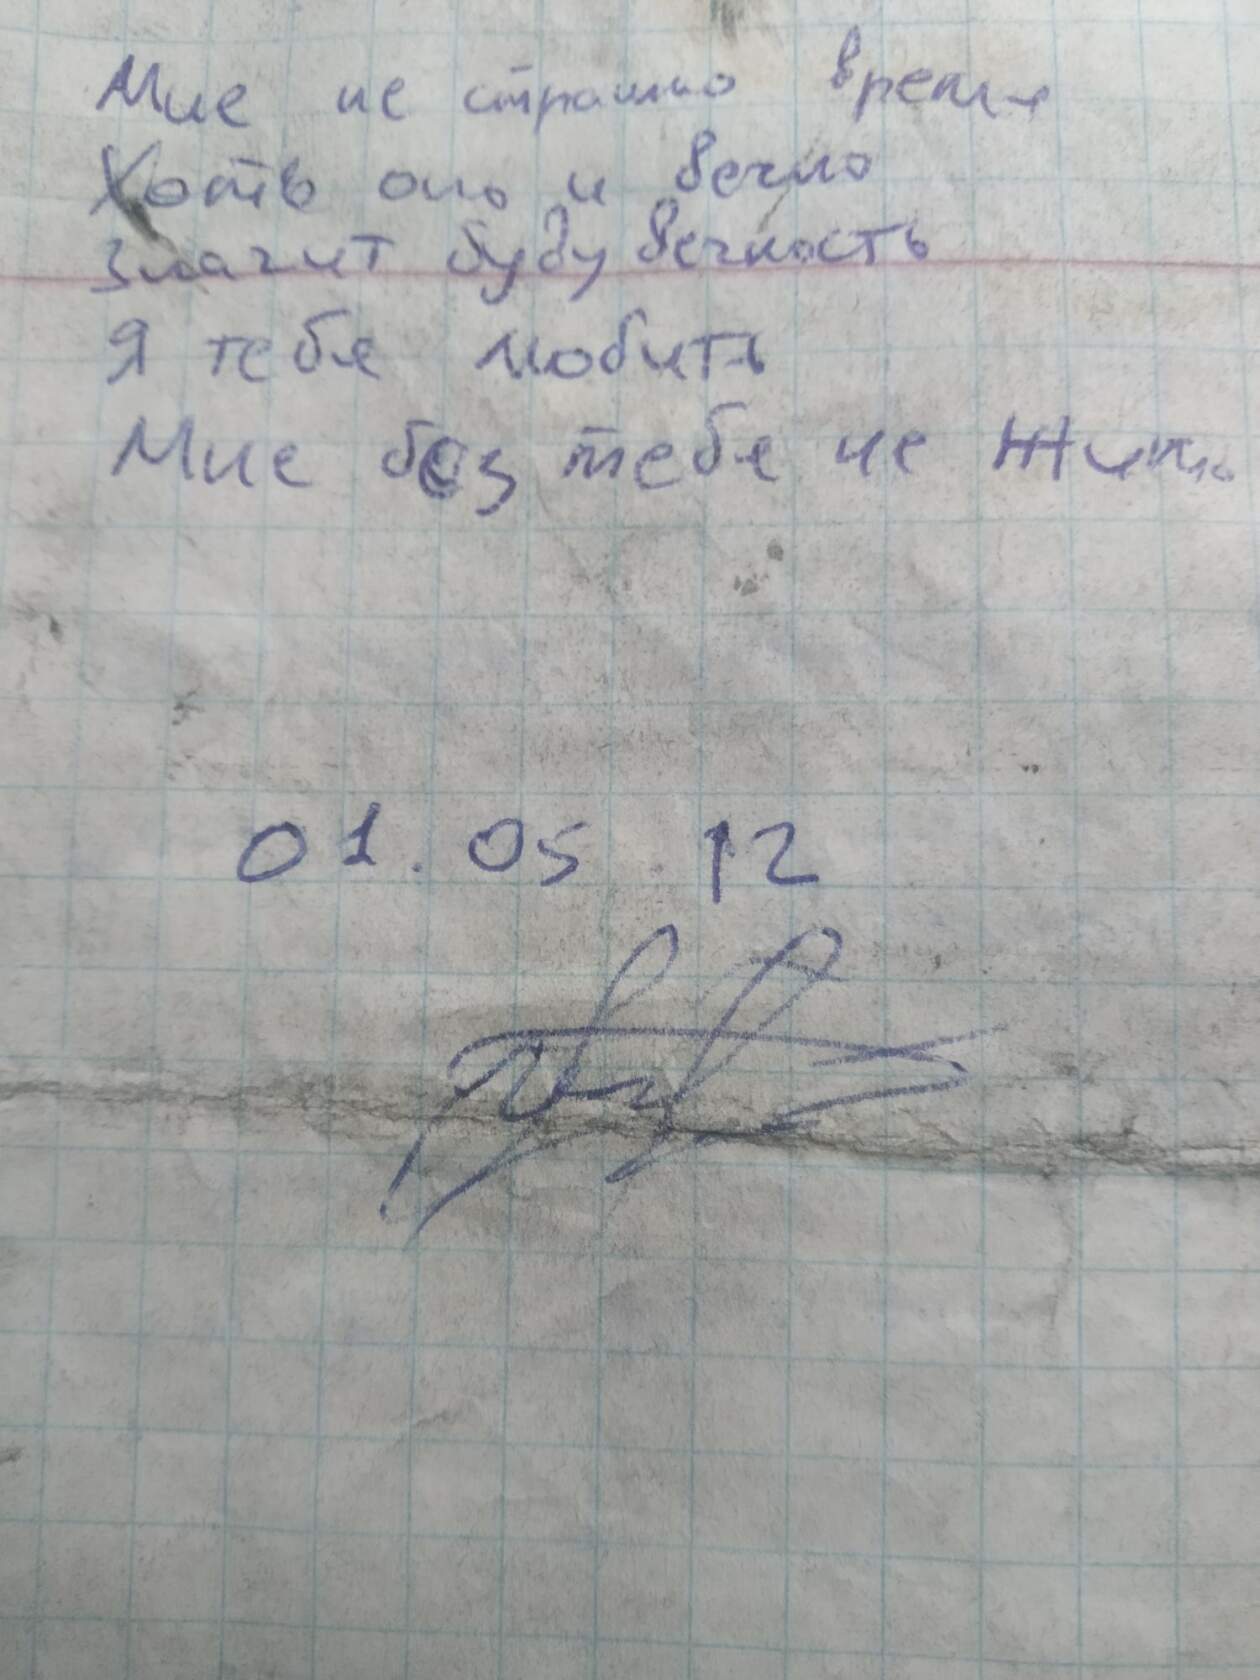 Мне не страшно время
Хоть оно и вечно
Значит буду вечность
Я тебя любить
Мне без тебя не жить
01.05.12